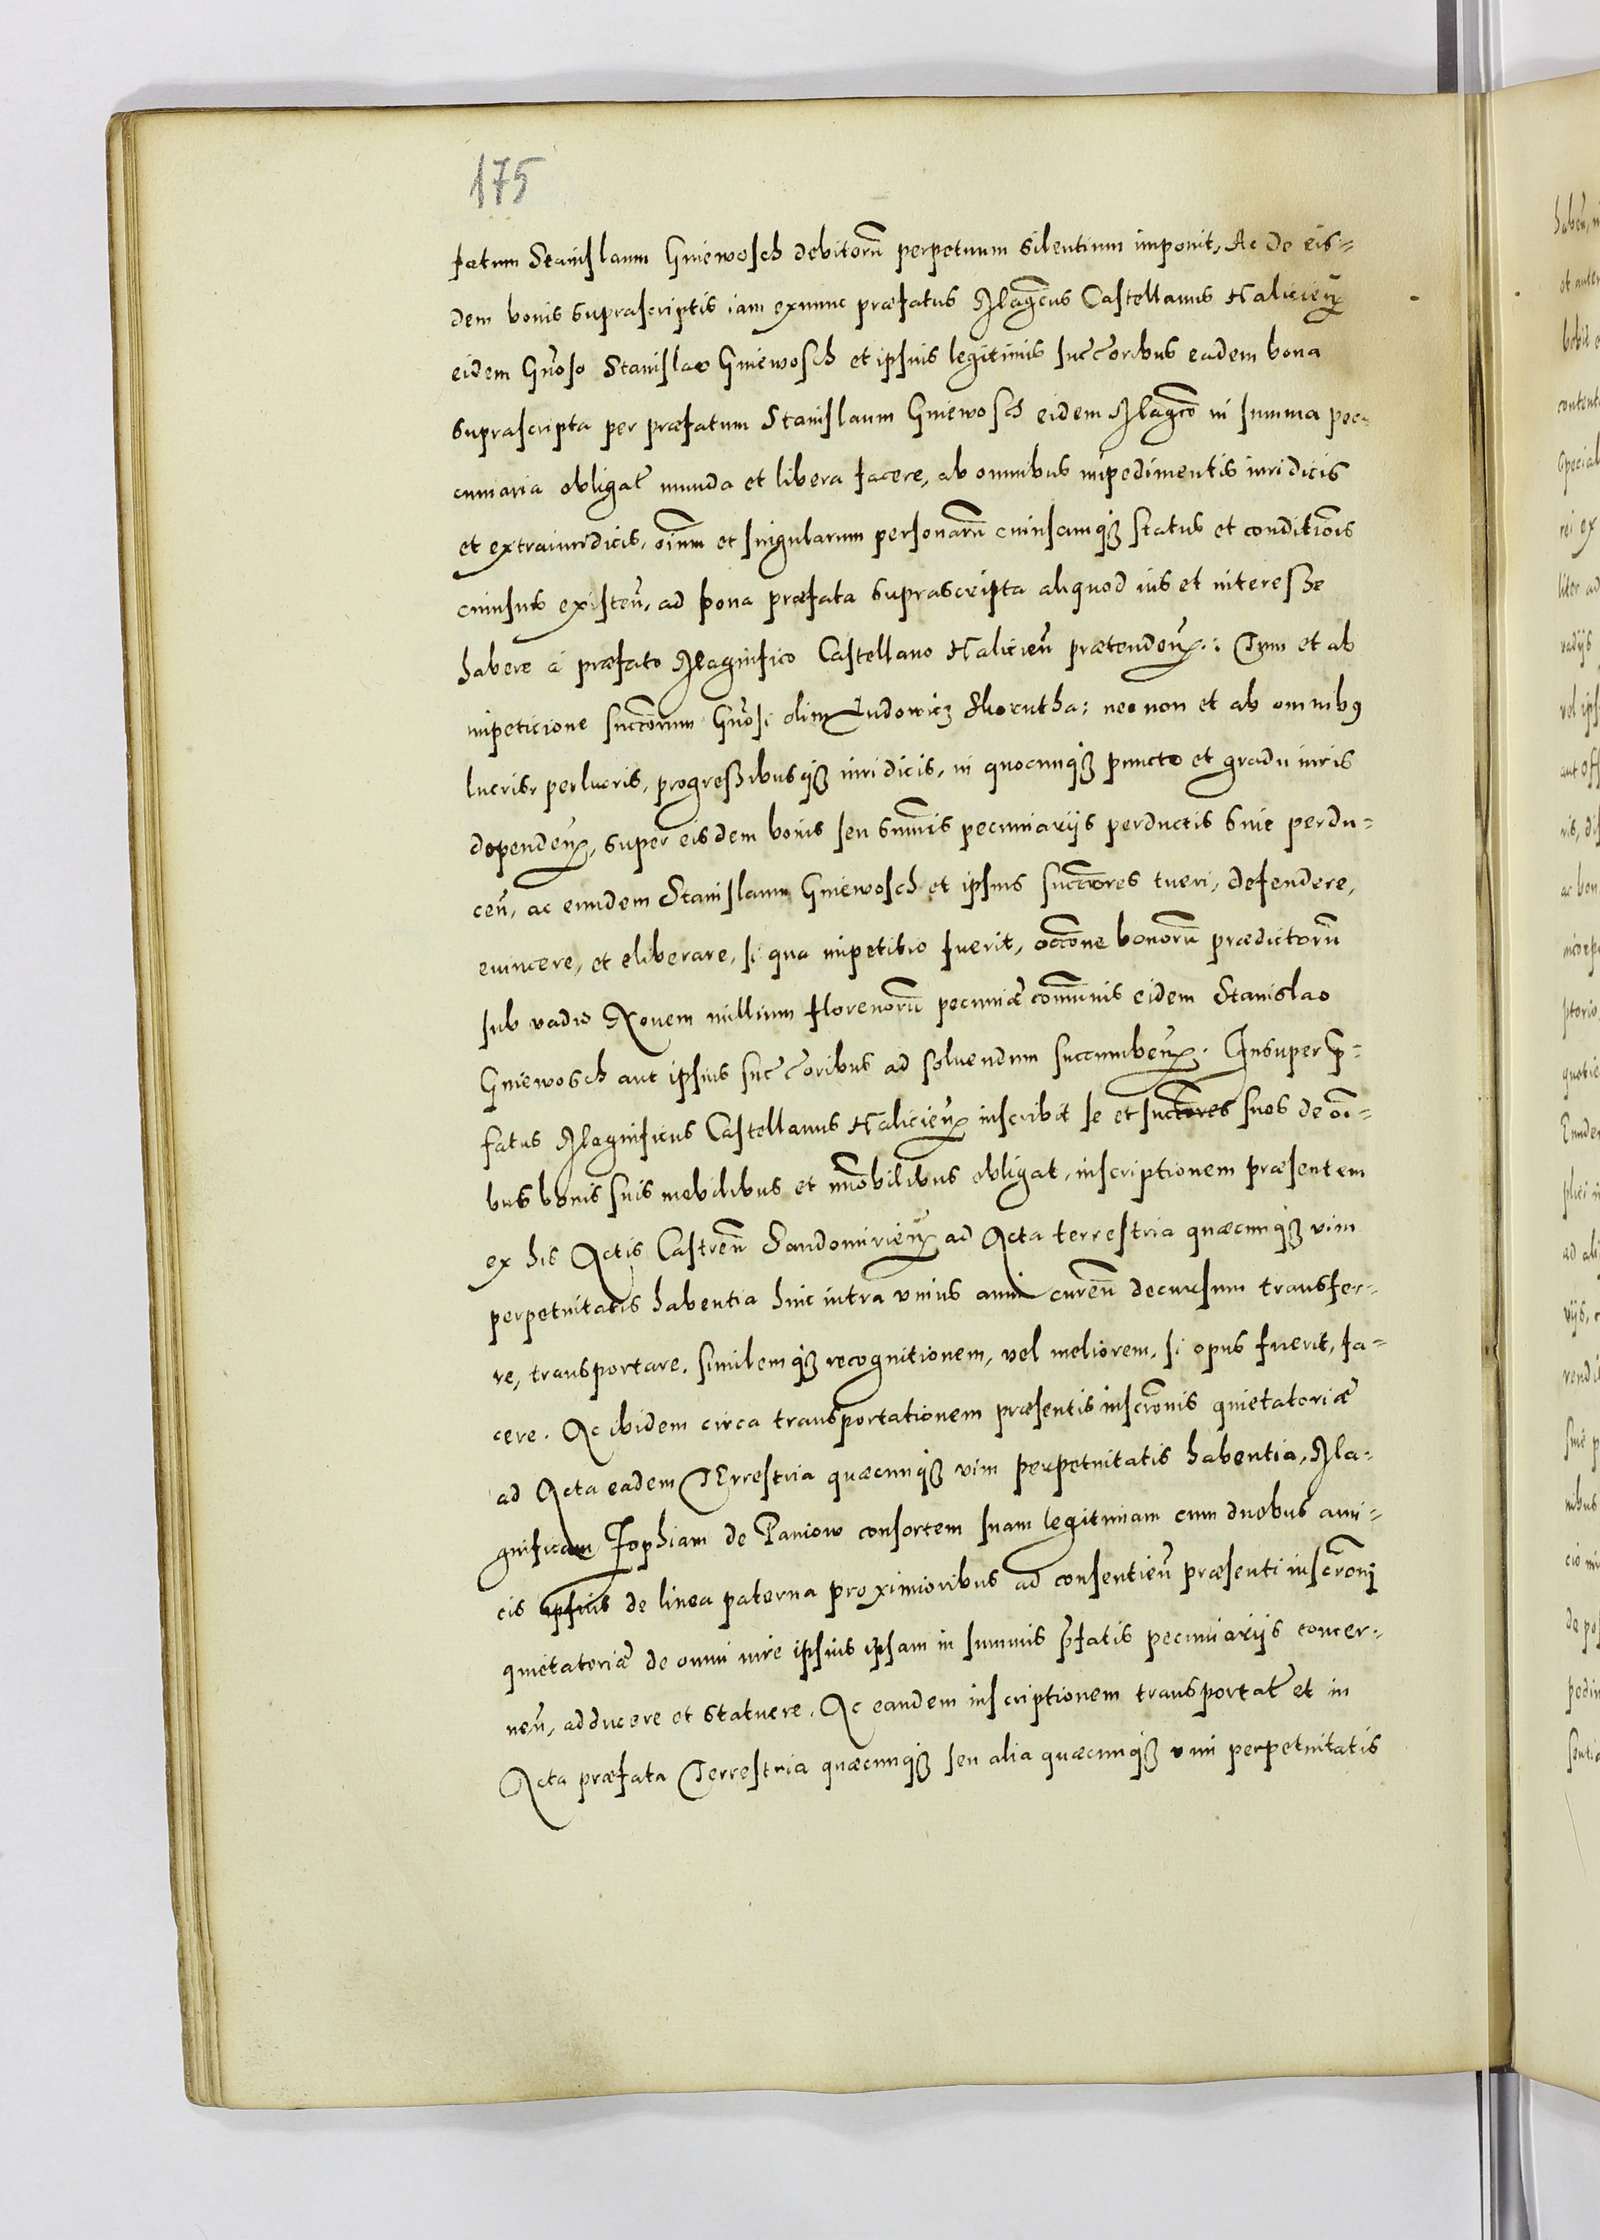 175
fatum Stanislaum Gniewosch debitorũ perpetuum silentium imponit, Ac de eis=
dem bonis suprascriptis iam exnunc præfatus Magcus Castellanus Halicieñ
eidem Gnoso Stanislao Gniewosch et ipsius legitimis succoribus eadem bona
suprascripta per præfatum Stanislaum Gniewosch eidem Magco in summa pec=
cuniaria obligat munda et libera facere, ab omnibus impedimentis iuridicis
et extraiuridicis, oium et singularum personarũ cuiuscumq3 status et conditiois
cuiusuis existeñ, ad bona præfata suprascripta aliquod ius et interesse
habere á præfato Magnifico Castellano Halicieñ prætendeñ: Tum et ab
impeticione succorum Gnosi olim Ludowici Skorutha: nec non et ab omnibus
lucris, perlucris, progressibusq3 iuridicis, in quocunq3 puncto et gradu iuris
dependeñ, super eisdem bonis seu summis pecuniarijs perductis siue perdu=
ceñ, ac eundem Stanislaum Gniewosch et ipsius succores tueri, defendere,
euincere, et eliberare, si qua impetitio fuerit, occone bonorũ prædictorũ
sub vadio Nouem millium florenorũ pecuniæ comunis eidem Stanislao
Gniewosch aut ipsius succoribus ad soluendum succumbeñ. Insuper p=
fatus Magnificus Castellanus Halicieñ inscribit se et succores suos de oi=
bus bonis suis mobilibus et imobilibus obligat, inscriptionem præsentem
ex his Actis Castreñ Sandomirieñ ad Acta terrestria quæcunq3 vim
perpetuitatis habentia hinc intra vnius anni cureñ decursum transfer=
re, transportare, similemq3 recognitionem, vel meliorem, si opus fuerit, fa=
cere. Ac ibidem circa transportationem præsentis inscronis quietatoriæ
ad Acta eadem TErrestria quæcunq3 vim perpetuitatis habentia, Ma=
gnificam Zophiam de Paniow consortem suam legitimam cum duobus ami=
cis ipsius de linea paterna proximioribus ad consentieñ præsenti inscroni
quietatoriæ de omni iure ipsius ipsam in summis pfatis pecuniarijs concer=
neñ, adducere et statuere. Ac eandem inscriptionem transportat et in
Acta præfata Terrestria quæcunq3 seu alia quæcunq3 vim perpetuitatis